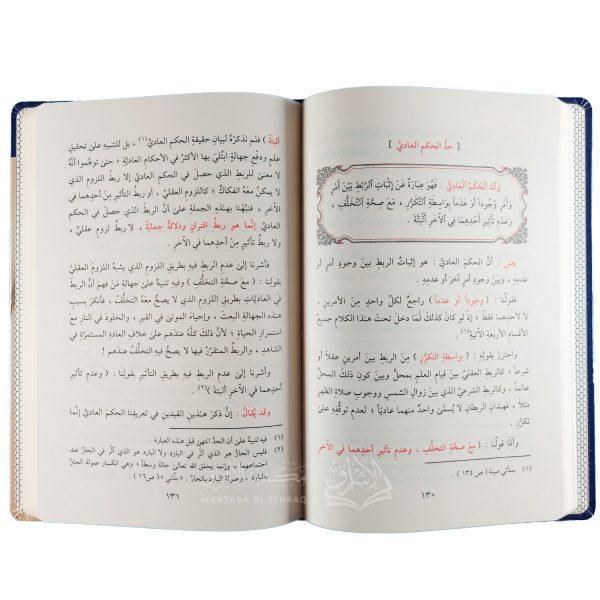 [ حدُّ الحكمِ العاديِّ ]
وَأَمَّا ٱلْحُكْمُ ٱلْعَادِيُّ : فَهُوَ عِبَارَةٌ عَنْ إِثْبَاتِ ٱلرَّبْطِ بَيْنَ أَمْرٍ
وَأَمْرٍ وُجُوداً أَوْ عَدَماً بِوَاسِطَةِ ٱلتَّكَرُّرِ ، مَعَ صِحَّةِ ٱلتَّخَلُّفِ ،
وَعَدَمِ تَأْثِيرِ أَحَدِهِمَا فِي ٱلْآخَرِ ٱلْبَتَّةَ .
يعني : أنَّ الحكمَ العاديَّ : هو إثباتُ الربطِ بينَ وجودِ أمرٍ أو
عدمِهِ ، وبينَ وجودِ أمرٍ آخرَ أو عدمِهِ .
فقولُنا : ( وجوداً أو عدماً ) راجعٌ لكلِّ واحدٍ مِنَ الأمرينِ ،
لا لأحدِهما فقط ؛ إذْ لو كانَ كذلكَ لَمَا دخلَ تحتَ هذا الكلامِ جميعُ
الأقسامِ الأربعةِ الآتيةِ(١) .
واحترزَ بقولِهِ : ( بواسطةِ التكرُّرِ ) مِنَ الربطِ بينَ أمرينِ عقلاً أو
شرعاً ؛ كالربطِ العقليِّ بينَ قيامِ العلمِ بمحلٍّ وبينَ كونِ ذلكَ المحلِّ
عالماً ، وكالربطِ الشرعيِّ الذي بينَ زوالِ الشمسِ ووجوبِ صلاةِ الظهرِ
مثلاً ، فهذانِ الربطانِ لا يُسمَّىٰ واحدٌ منهما عادياً ؛ لعدمِ توقُّفِهِ علىٰ
تكرُّرٍ .
وأمَّا قولُنا : ( معَ صحَّةِ التخلُّفِ ، وعدمِ تأثيرِ أحدِهما في الآخرِ
(١) ستأتي مبينة ( ص ١٣٤ ) .
١٣٠
ألبتةَ ) فلم نذكرْهُ لبيانِ حقيقةِ الحكمِ العاديِّ(١) ، بل للتنبيهِ علىٰ تحقيقِ
علمٍ ودفعِ جهالةٍ ابتُلِيَ بها الأكثرُ في الأحكامِ العاديَّةِ ؛ حتىٰ توهَّموا أنَّهُ
لا معنىٰ للربطِ الذي حصلَ في الحكمِ العاديِّ إلا ربطُ اللزومِ الذي
لا يمكنُ معَهُ انفكاكٌ ؛ كاللزومِ العقليِّ ، أو ربطُ التأثيرِ مِنْ أحدِهما في
الآخرِ ، فنبَّهْنا بهذهِ الجملةِ علىٰ أنَّ الربطَ الذي حصلَ في الحكمِ
العاديِّ إنَّما هو ربطُ اقترانٍ ودلالةٍ جعليَّةٍ ، لا ربطُ لزومٍ عقليٍّ ،
ولا ربطُ تأثيرٍ مِنْ أحدِهما في الآخرِ .
فأشرنا إلىٰ عدمِ الربطِ فيهِ بطريقِ اللزومِ الذي يشبهُ اللزومَ العقليَّ
بقولِنا : ( معَ صحَّةِ التخلُّفِ ) وفيهِ تنبيهٌ علىٰ جهالةِ مَنْ فهمَ أنَّ الربطَ
في العادياتِ بطريقِ اللزومِ الذي لا يصحُّ معَهُ التخلُّفُ ، فأنكرَ بسببِ
هذهِ الجهالةِ البعثَ ، وإحياءَ الموتىٰ في القبرِ ، والخلودَ في النارِ معَ
استمرارِ الحياةِ ؛ لأنَّ ذلكَ كلَّهُ عندَهم علىٰ خلافِ العادةِ المستمرَّةِ في
الشاهدِ ، والربطُ المتقرِّرُ فيها لا يصحُّ فيهِ التخلُّفُ عندَهم !
وأشرنا إلىٰ عدمِ الربطِ فيهِ بطريقِ التأثيرِ بقولِنا : ( وعدمِ تأثيرِ
أحدِهما في الآخرِ ألبتةَ )(٢) .
وقد يُقالُ : إنَّ ذكرَ هـٰذينِ القيدينِ في تعريفِنا الحكمَ العاديَّ إنَّما
(١) فيه تنبيه على أن الحدَّ انتهى قبل هذه العبارة .
(٢) فليس الحارُّ هو الذي أثَّر في البارد ولا البارد هو الذي أثَّر في الحارِّ عند
اجتماعهما ، وإنما يخلق الله تعالى حالة وسطاً ؛ وهي انكسار صولة الحارِّ
بالبارد ، وصولة البارد بالحارِّ . « بناني » ( ص ١٦ ) .
١٣١
MAKTABA AL-ICHRAQ